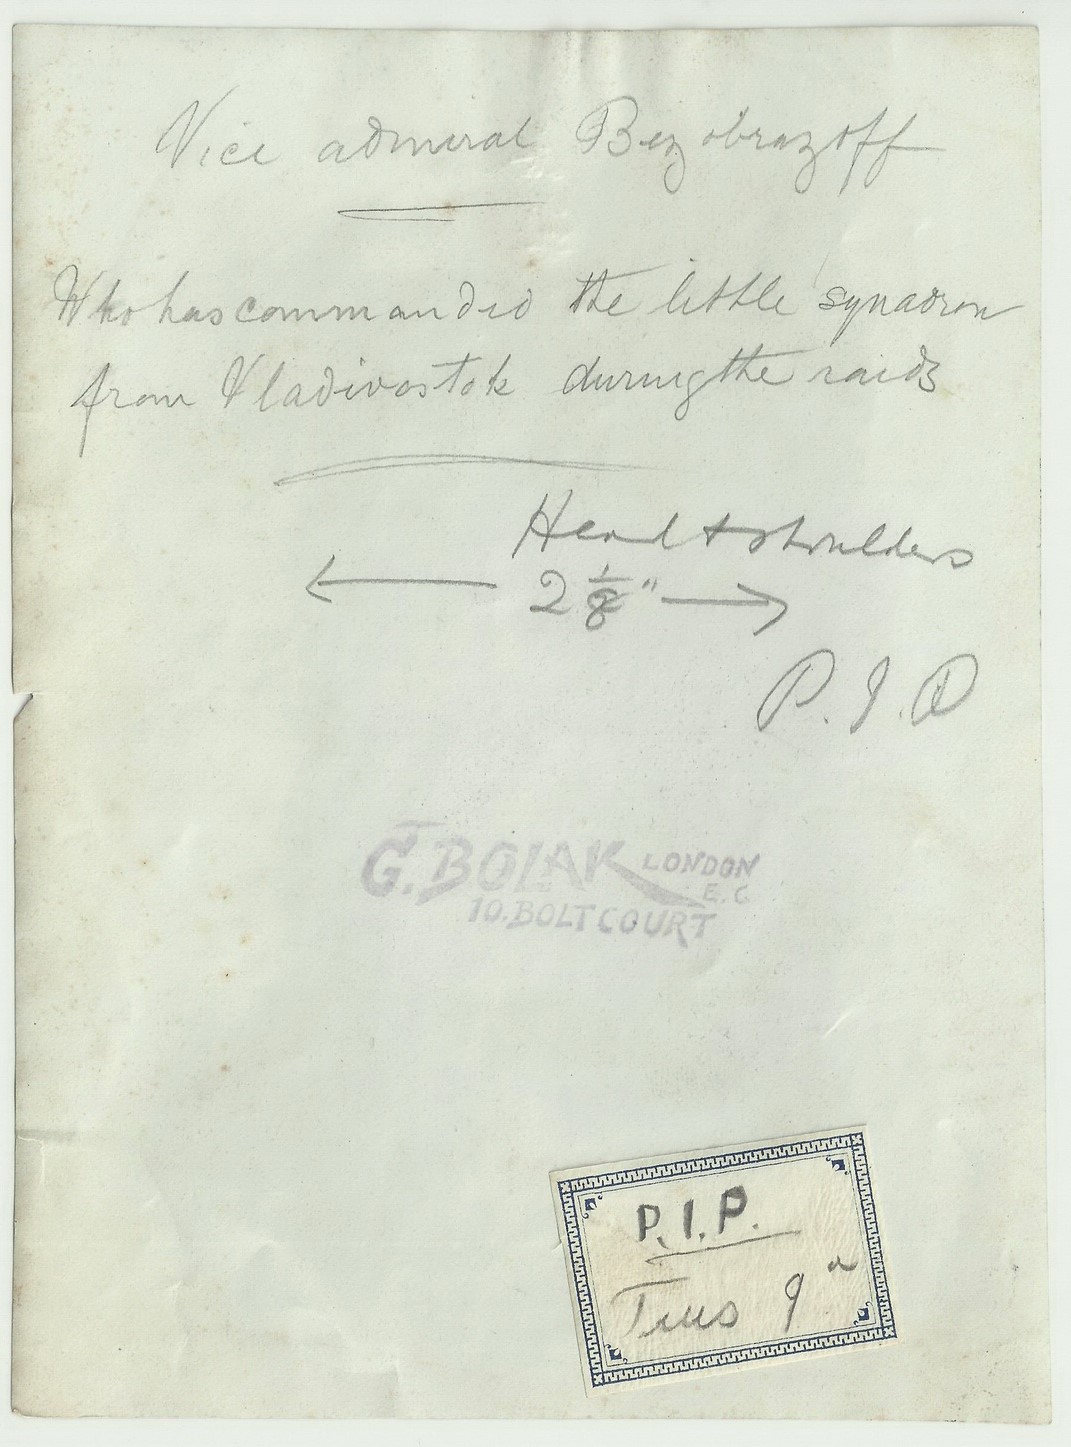 Vice admiral Bezobrazoff
Who has commanded the little squadron
from Vladivostok during the raids
Head & shoulders
2 1/8"
P.I.P
G. BOLAK LONDON
E.C
10. BOLT COURT
P.I.P.
Tues 9 a